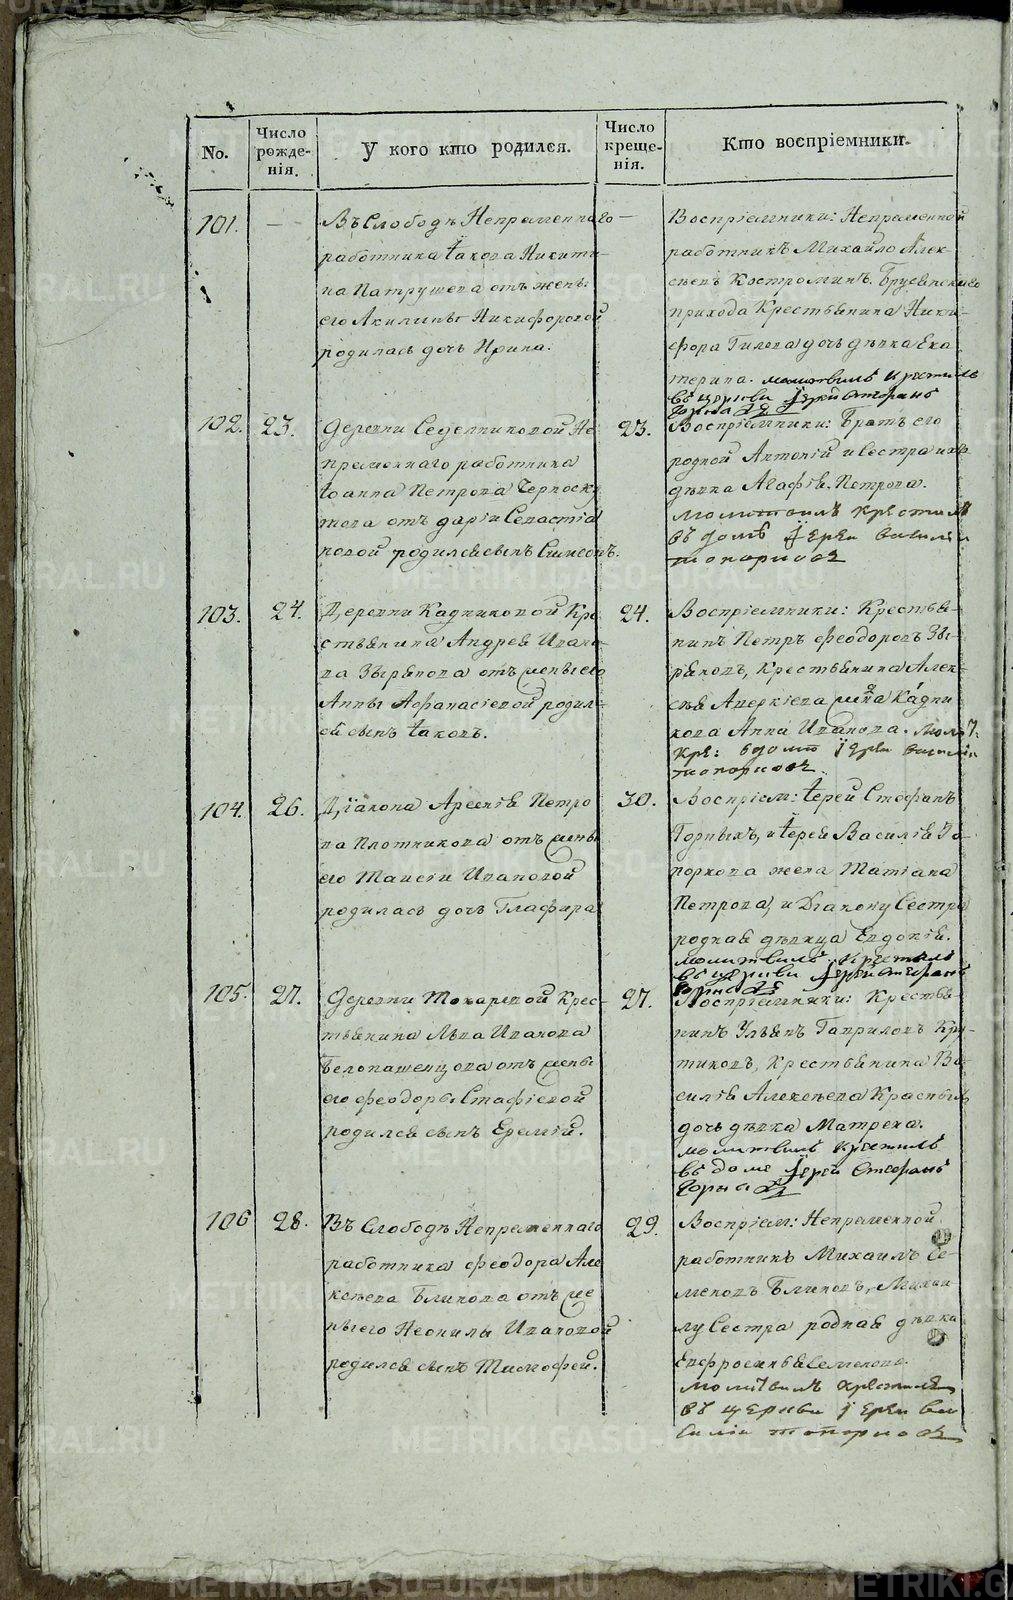 No.
Число рожде-нія.
У кого кто родился.
Число креще-нія.
Кто воспріемники.
101.
—
Въ Слободѣ Непремѣннаго
работника Іакова Никити-
на Патрушева отъ жены
его Акилины Никифоровой
родилась дочь Ирина.
—
Воспріемники: Непремѣнной
работникъ Михайло Алек-
сѣевъ Костроминъ. Брусянскаго
прихода Крестьянина Ники-
фора Гилева дочь дѣвка Ека
терина. молитвилъ крестилъ
въ церкви Іерей Стефанъ
Горныхъ
102.
23.
Деревни Седелниковой Не-
премѣннаго работника
Іоанна Петрова Черноску
това отъ Даріи Севастіа
новой родился сынъ Симеонъ.
23.
Воспріемники: Братъ его
родной Антоній и Сестра ихъ
дѣвка Агафія Петрова.
молитвилъ крестилъ
въ домѣ Іерей Василій
Топорковъ
103.
24.
Деревни Кадниковой Кре
стьянина Андрея Ивано-
ва Зырянова отъ жены его
Анны Афанасіевой родил-
ся сынъ Іаковъ.
24.
Воспріемники: Крестья-
нинъ Петръ Феодоровъ Зы-
ряновъ, Крестьянина Алек-
сѣя Аверкіева жена Кадни-
кова Анна Иванова. мол:
кре: въ домѣ Іерей Василій
Топорковъ.
104.
26.
Діакона Арсенія Петро
ва Плотникова отъ жены
его Таисіи Ивановой
родилась дочь Глафира
30.
Воспріем: Іерей Стефанъ
Горныхъ, и Іерея Василія То-
поркова жена Татіана
Петрова, и Діакону Сестра
родная дѣвица Евдокія.
молитвилъ крестилъ
въ церкви Іерей Стефанъ
Горныхъ
105.
27.
Деревни Токаревой Крес-
тьянина Льва Иванова
Белопашенцова отъ жены
его Феодоры Стафіевой
родился сынъ Еремій.
27.
Воспріемники: Крестья-
нинъ Ульянъ Гавриловъ Кру-
тиковъ, Крестьянина Ва-
силія Алексѣева Красныхъ
дочь дѣвка Матрена.
молитвилъ крестилъ
въ доме Іерей Стефанъ
Горныхъ
106
28.
Въ Слободѣ Непремѣннаго
работника Феодора Але
ксѣева Блинова отъ же
ны его Неонилы Ивановой
родился сынъ Тимофей.
29.
Воспріем: Непремѣнной
работникъ Михаилъ Се-
меновъ Блиновъ, Михаи-
лу Сестра родная дѣвка
Евфросинья Семенова.
молитвилъ крестилъ
въ церкви Іерей Ва
силій Топорковъ
METRIKI.GASO-URAL.RU